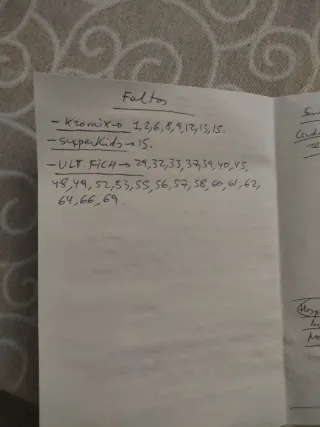 Faltos
- Kromix → 1,2,6,8,9,12,13,15.
- Superkids → 15.
- ULT. FICH → 29,32,33,37,39,40,45,
48,49,52,53,55,56,57,58,60,61,62,
64,66,69.